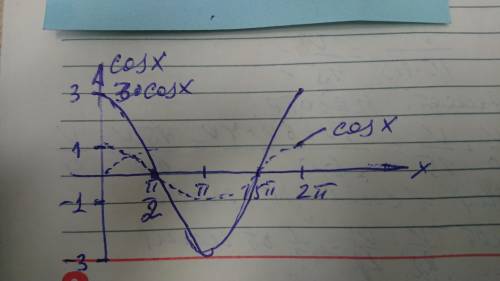 cosx
3 3•cosx
1 cosx
π/2 π 1,5π 2π x
-1
-3